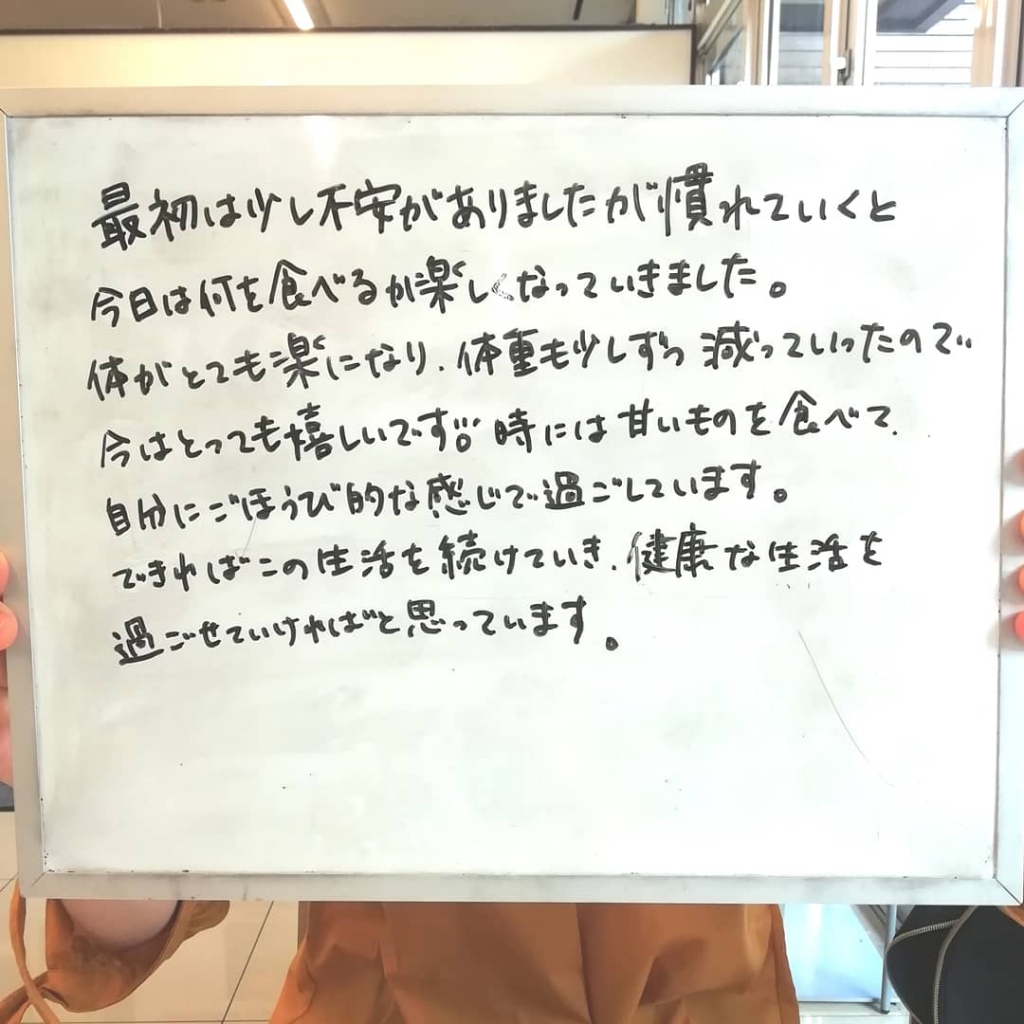 最初は少し不安がありましたが慣れていくと
今日は何を食べるか楽しくなっていきました。
体がとても楽になり、体重も少しずつ減っていったので、
今はとっても嬉しいです!! 時には甘いものを食べて、
自分にごほうび的な感じで過ごしています。
できればこの生活を続けていき、健康な生活を
過ごせていければと思っています。